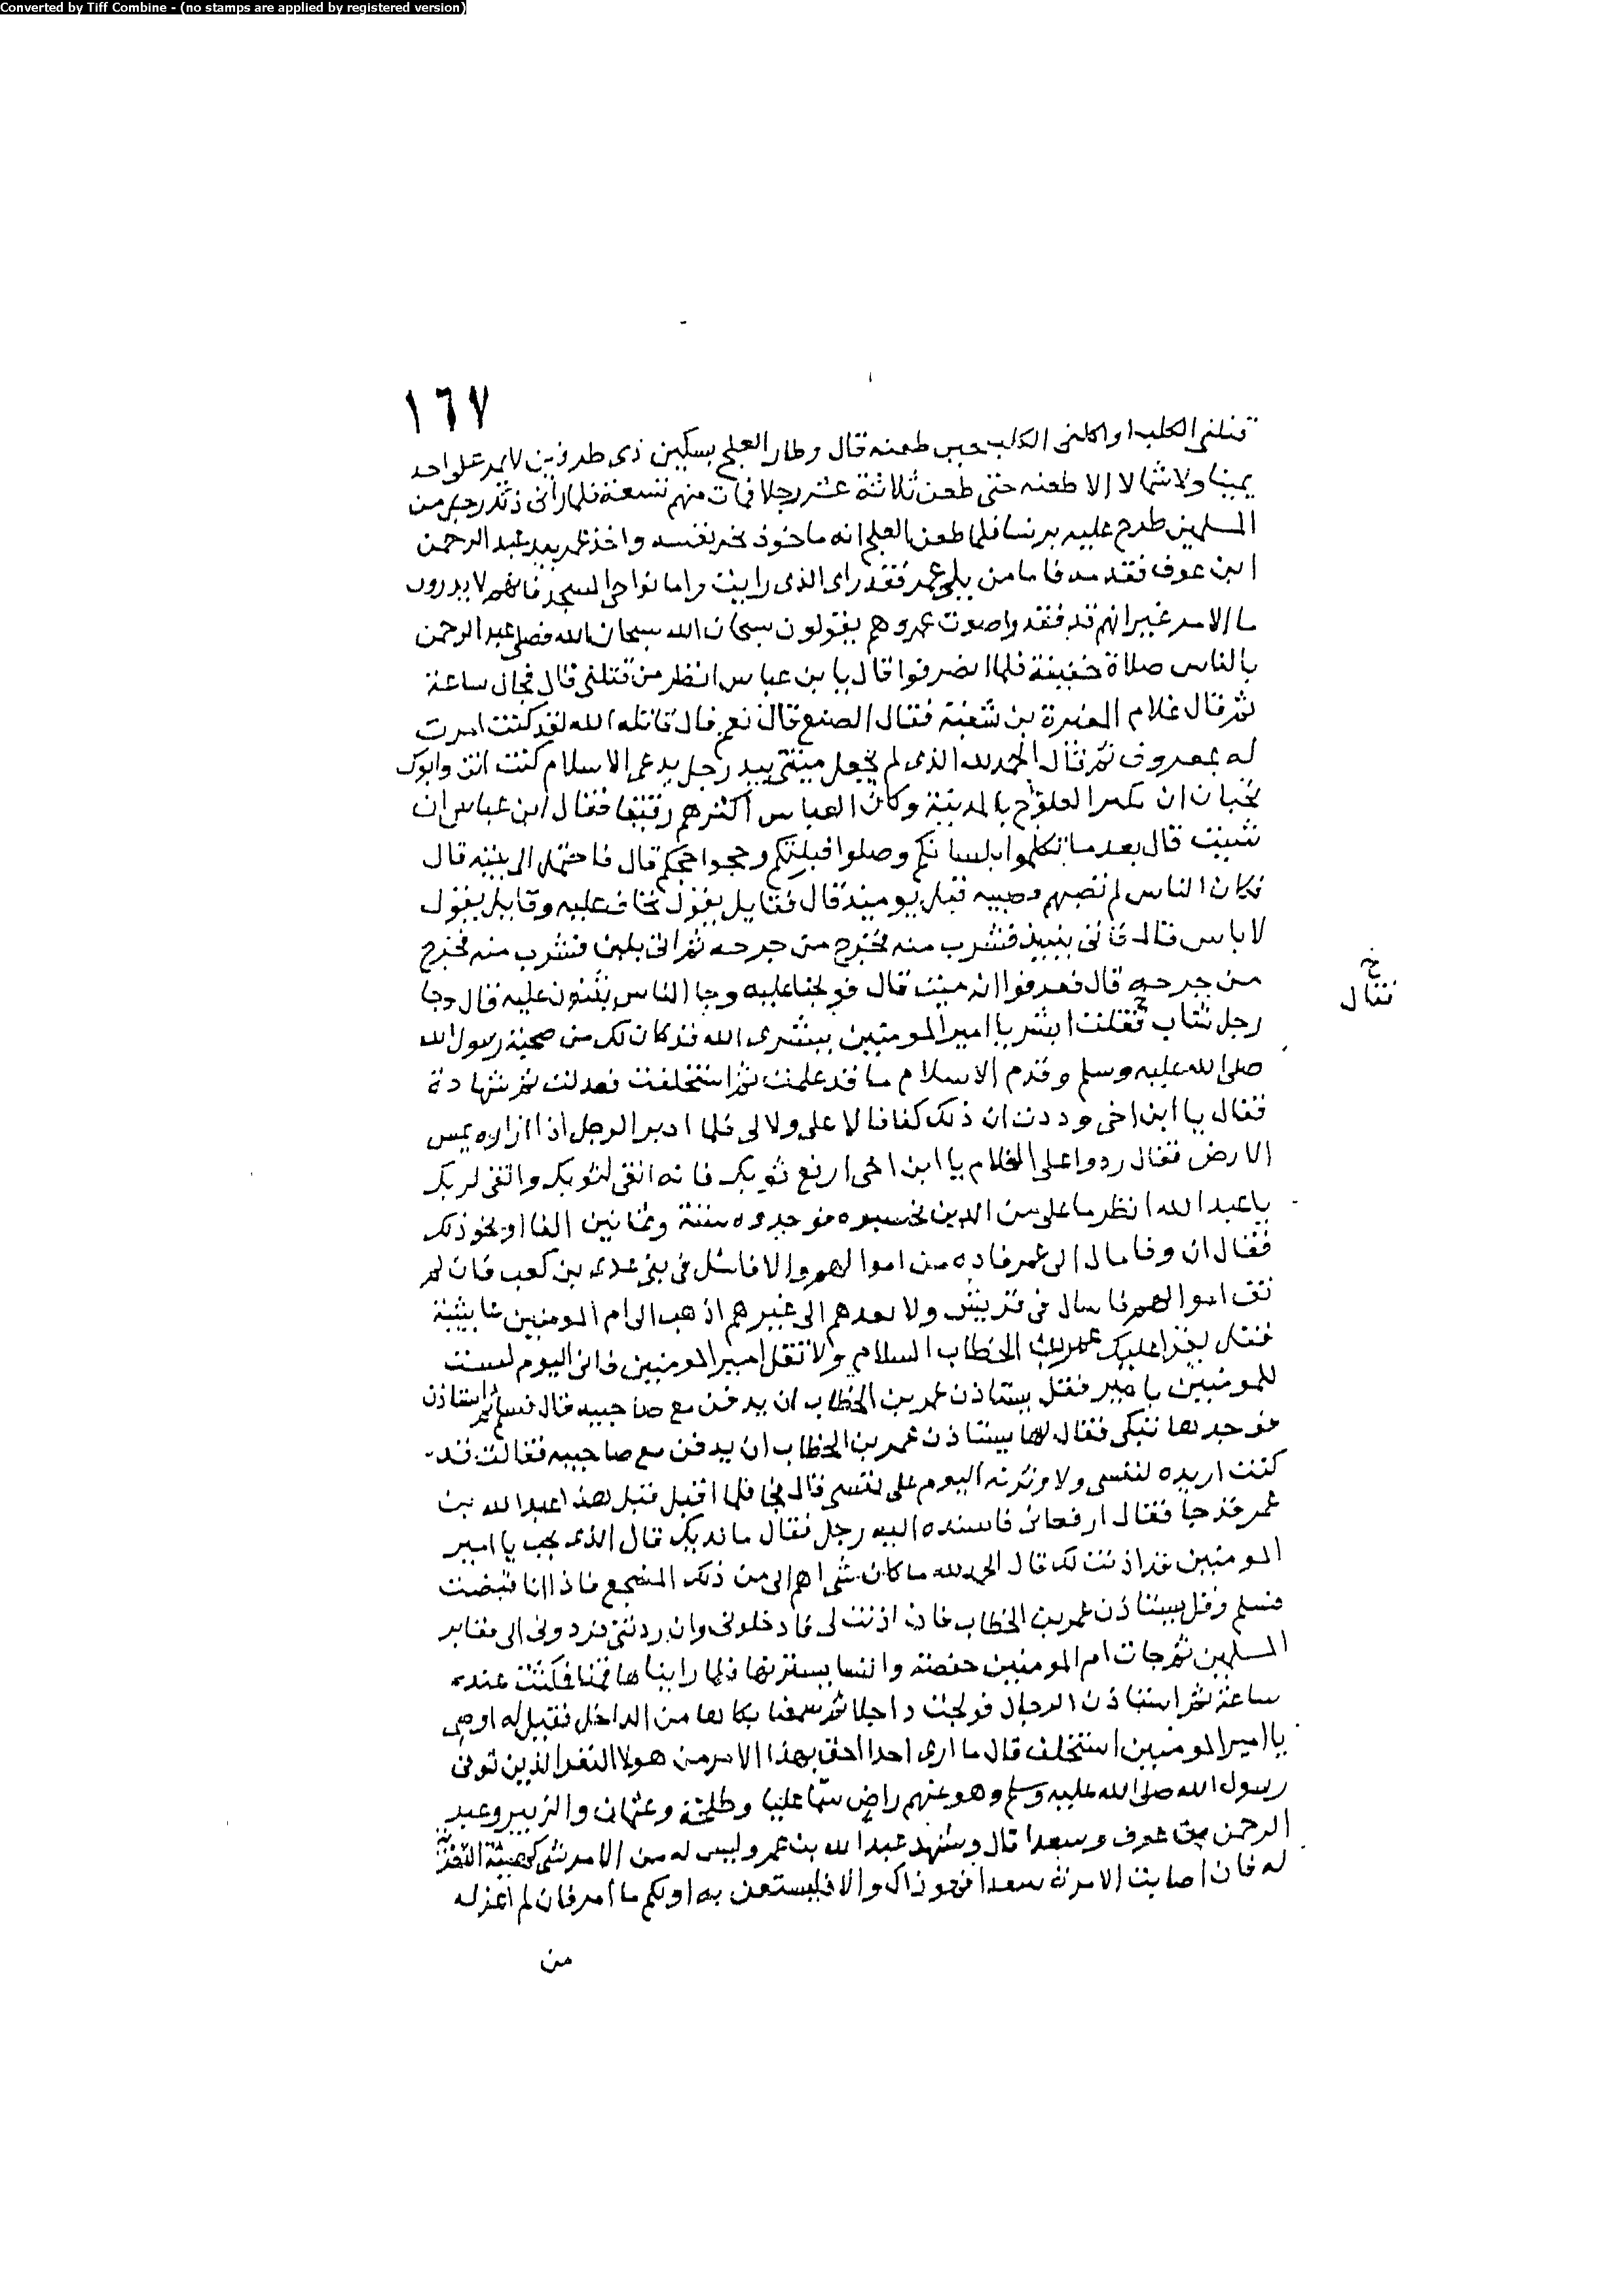 Converted by Tiff Combine - (no stamps are applied by registered version)
١٦٧
قتلنى الكلب او اكلنى الكلب حين طعنه قال وطار العلج بسكين ذى طرفين لا يمر على احد
يمينا ولا شمالا الا طعنه حتى طعن ثلاثة عشر رجلا فمات منهم تسعة فلما راى ذلك رجل من
المسلمين طرح عليه برنسا فلما طعن العلج انه ماخوذ نحر نفسه واخذ عمر بيد عبد الرحمن
ابن عوف فقدمه فاما من يلى عمر فقد راى الذى رايت واما نواحى المسجد فانهم لا يدرون
ما الامر غير انهم قد فقدوا صوت عمر وهم يقولون سبحان الله سبحان الله فصلى عبد الرحمن
بالناس صلاة خفيفة فلما انصرفوا قال يا بن عباس انظر من قتلنى قال فجال ساعة
ثم قال غلام المغيرة بن شعبة فقال الصنع قال نعم قال قاتله الله لقد كنت امرت
له بمعروف ثم قال الحمد لله الذى لم يجعل ميتتى بيد رجل يدعى الاسلام كنت انت وابوك
تحبان ان تكثر العلوج بالمدينة وكان العباس اكثرهم رقيقا فقال ابن عباس ان
شيت قال بعد ما تكلموا بلسانكم وصلوا قبلتكم وحجوا حجكم قال فاحتمل الى بيته قال
فكان الناس لم تصبهم مصيبه قبل يوميذ قال فقايل يقول نخاف عليه وقايل يقول
لا باس قال فاتى بنبيذ فشرب منه فخرج من جرحه ثم اتى بلبن فشرب منه فخرج
من جرحه قال فعرفوا انه ميت قال فولجنا عليه وجا الناس يثنون عليه قال وجا
خ
فقال
رجل شاب فقلت ابشر يا امير المومنين ببشرى الله قد كان لك من صحبة رسول الله
صلى الله عليه وسلم وقدم الاسلام ما قد علمت ثم استخلفت فعدلت ثم شهادة
فقال يا ابن اخى وددت ان ذلك كفافا لا على ولا لى فلما ادبر الرجل اذا ازاره يمس
الارض فقال ردوا على الغلام يا ابن اخى ارفع ثوبك فانه انقى لثوبك واتقى لربك
يا عبد الله انظر ما على من الدين فحسبوه فوجدوه ستة وثمانين الفا او نحو ذلك
فقال ان وفا مال ال عمر فاده من اموالهم والا فاسل فى بنى عدى بن كعب فان لم
تف اموالهم فاسال فى قريش ولا تعدهم الى غيرهم اذهب الى ام المومنين عايشة
فقل يقرا عليك عمر بن الخطاب السلام ولا تقل امير المومنين فانى اليوم لست
للمومنين بامير فقل يستاذن عمر بن الخطاب ان يدفن مع صاحبيه قال فسلم ثم استاذن
فوجدها تبكى فقال لها يستاذن عمر بن الخطاب ان يدفن مع صاحبيه فقالت قد
كنت اريده لنفسى ولاوثرنه اليوم على نفسى قال فجا فلما اقبل قيل هذا عبد الله بن
عمر قد جا فقال ارفعانى فاسنده اليه رجل فقال ما لديك قال الذى تحب يا امير
المومنين قد اذنت لك قال الحمد لله ما كان شى اهم الى من ذلك المضجع فاذا انا قبضت
فسلم وقل يستاذن عمر بن الخطاب فان اذنت لى فادخلونى وان ردتنى فردونى الى مقابر
المسلمين ثم جات ام المومنين حفصة والنسا يسترنها فلما رايناها قمنا فمكثت عنده
ساعة ثم استاذن الرجال فولجت داخلا ثم سمعنا بكاها من الداخل فقيل له اوصى
يا امير المومنين استخلف قال ما ارى احدا احق بهذا الامر من هولا النفر الذين توفى
رسول الله صلى الله عليه وسلم وهو عنهم راض سما عليا وطلحة وعثمان والزبير وعبد
الرحمن بن عوف وسعدا قال وشهد عبد الله بن عمر وليس له من الامر شى كهيئة التعزية
له فان اصابت الامرة سعدا فهو ذاك والا فليستعن به اوكم ما امر فان لم اعزله
من